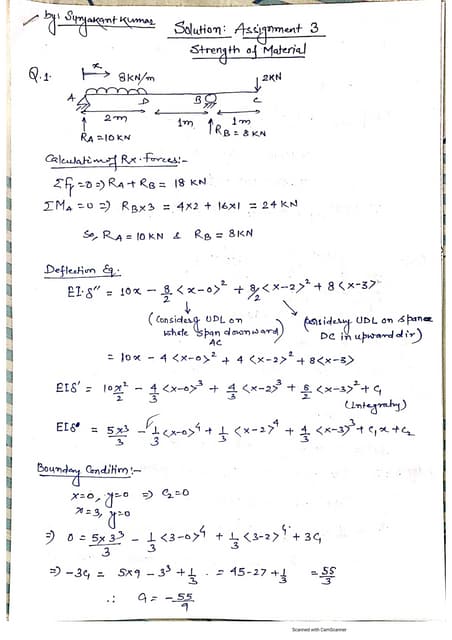 by: Suryakant Kumar
Solution: Assignment 3
Strength of Material
Q.1.
x
8KN/m
2KN
A
D
B
C
2m
1m
1m
RA = 10 KN
RB = 8 KN
Calculation of Rx. Forces:-
ΣFy = 0 => RA + RB = 18 KN
ΣMA = 0 => RB×3 = 4×2 + 16×1 = 24 KN
So, RA = 10 KN & RB = 8 KN
Deflection Eq.
EI.δ'' = 10x - 8/2 <x-0>² + 8/2 <x-2>² + 8<x-3>
(Considerg UDL on whole span downward) AC
(Considery UDL on span DC in upward dir)
= 10x - 4<x-0>² + 4<x-2>² + 8<x-3>
EIδ' = 10x²/2 - 4/3 <x-0>³ + 4/3 <x-2>³ + 8/2 <x-3>² + C₁
(Integratg)
EIδ = 5x³/3 - 1/3 <x-0>⁴ + 1/3 <x-2>⁴ + 4/3 <x-3>³ + C₁x + C₂
Boundary Condition:-
x=0, y=0 => C₂=0
x=3, y=0
=> 0 = 5×3³/3 - 1/3 <3-0>⁴ + 1/3 <3-2>⁴ + 3C₁
=> -3C₁ = 5×9 - 3³ + 1/3 . = 45-27+1/3 = 55/3
∴ C₁ = -55/9
Scanned with CamScanner